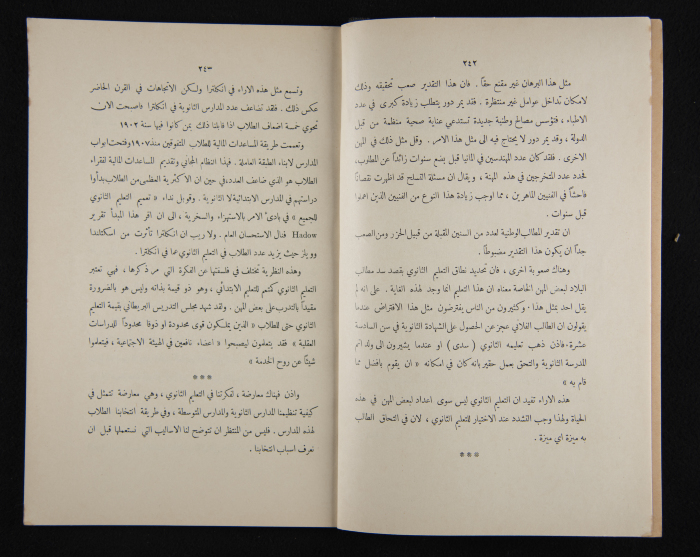 ٢٤٢
مثل هذا البرهان غير مقنع حقاً . فان هذا التقدير صعب تحقيقه وذلك
لامكان تداخل عوامل غير منتظرة . فقد يمر دور يتطلب زيادة كبرى في عدد
الاطباء ، فتؤسس مصالح وطنية جديدة تستدعي عناية صحية منظمة من قبل
الدولة ، وقد يمر دور لا يحتاج فيه الى مثل هذا الامر . وقل مثل ذلك في المهن
الاخرى . فقد كان عدد المهندسين في المانيا قبل بضع سنوات زائداً عن المطلوب،
فحدد عدد المتخرجين في هذه المهنة ، ويقال ان مسئلة التسلح قد اظهرت نقصاناً
فاحشاً في الفنيين الماهرين ، مما اوجب زيادة هذا النوع من الفنيين الذين اهملوا
قبل سنوات .
ان تقدير المطالب الوطنية لعدد من السنين المقبلة من قبيل الحزر ومن الصعب
جداً ان يكون هذا التقدير مضبوطاً .
وهناك صعوبة اخرى ، فان تحديد نطاق التعليم الثانوي بقصد سد مطالب
البلاد لبعض المهن الخاصة معناه ان هذا التعليم انما وجد لهذه الغاية . على انه لم
يقل احد بمثل هذا . وكثيرون من الناس يفترضون مثل هذا الافتراض عندما
يقولون ان الطالب الفلاني عجز عن الحصول على الشهادة الثانوية في سن السادسة
عشرة . فاذن ذهب تعليمه الثانوي ( سدى ) او عندما يشيرون الى ولد اتم
المدرسة الثانوية والتحق بعمل حقير بانه كان في امكانه « ان يقوم بافضل مما
قام به »
هذه الاراء تفيد ان التعليم الثانوي ليس سوى اعداد لبعض المهن في هذه
الحياة ولهذا وجب التشدد عند الاختيار للتعليم الثانوي ، لان في التحاق الطالب
به ميزة اي ميزة .
***
٢٤٣
وتسمع مثل هذه الاراء في انكلترا ولكن الاتجاهات في القرن الحاضر
عكس ذلك . فلقد تضاعف عدد المدارس الثانوية في انكلترا فاصبحت الان
تحوي خمسة اضعاف الطلاب اذا قابلنا ذلك بمن كانوا فيها سنة ١٩٠٢
وتعممت طريقة المساعدات المالية للطلاب المتفوقين منذ ١٩٠٧ وفتحت ابواب
المدارس لابناء الطبقة العاملة . فهذا النظام المجاني وتقديم المساعدات المالية لفقراء
الطلاب هو الذي ضاعف العدد، في حين ان الاكثرية العظمى من الطلاب بدأوا
دراستهم في المدارس الابتدائية لا الثانوية . وقوبل نداء « تعميم التعليم الثانوي
للجميع » في بادىء الامر بالاستهزاء والسخرية ، الى ان اقر هذا المبدأ تقرير
Hadow فنال الاستحسان العام . ولا ريب ان انكلترا تأثرت من اسكتلندا
وويلز حيث يزيد عدد الطلاب في التعليم الثانوي عما في انكلترا .
وهذه النظرية تختلف في فلسفتها عن الفكرة التي مر ذكرها ، فهي تعتبر
التعليم الثانوي كمتمم للتعليم الابتدائي ، وهو ذو قيمة بذاته وليس هو بالضرورة
مقيداً بالتدرب على بعض المهن . ولقد شهد مجلس التدريس البريطاني بقيمة التعليم
الثانوي حتى للطلاب « الذين يملكون قوى محدودة او ذوقا محدوداً للدراسات
العقلية » فقد يتعلمون ليصبحوا « اعضاء نافعين في الهيئة الاجتماعية ، فيتعلموا
شيئاً عن روح الخدمة »
***
واذن فهناك معارضة ، لفكرتنا في التعليم الثانوي ، وهي معارضة تتمثل في
كيفية تنظيمنا المدارس الثانوية والمدارس المتوسطة ، وفي طريقة انتخابنا الطلاب
لهذه المدارس . فليس من المنتظر ان تتوضح لنا الاساليب التي نستعملها قبل ان
نعرف اسباب انتخابنا .